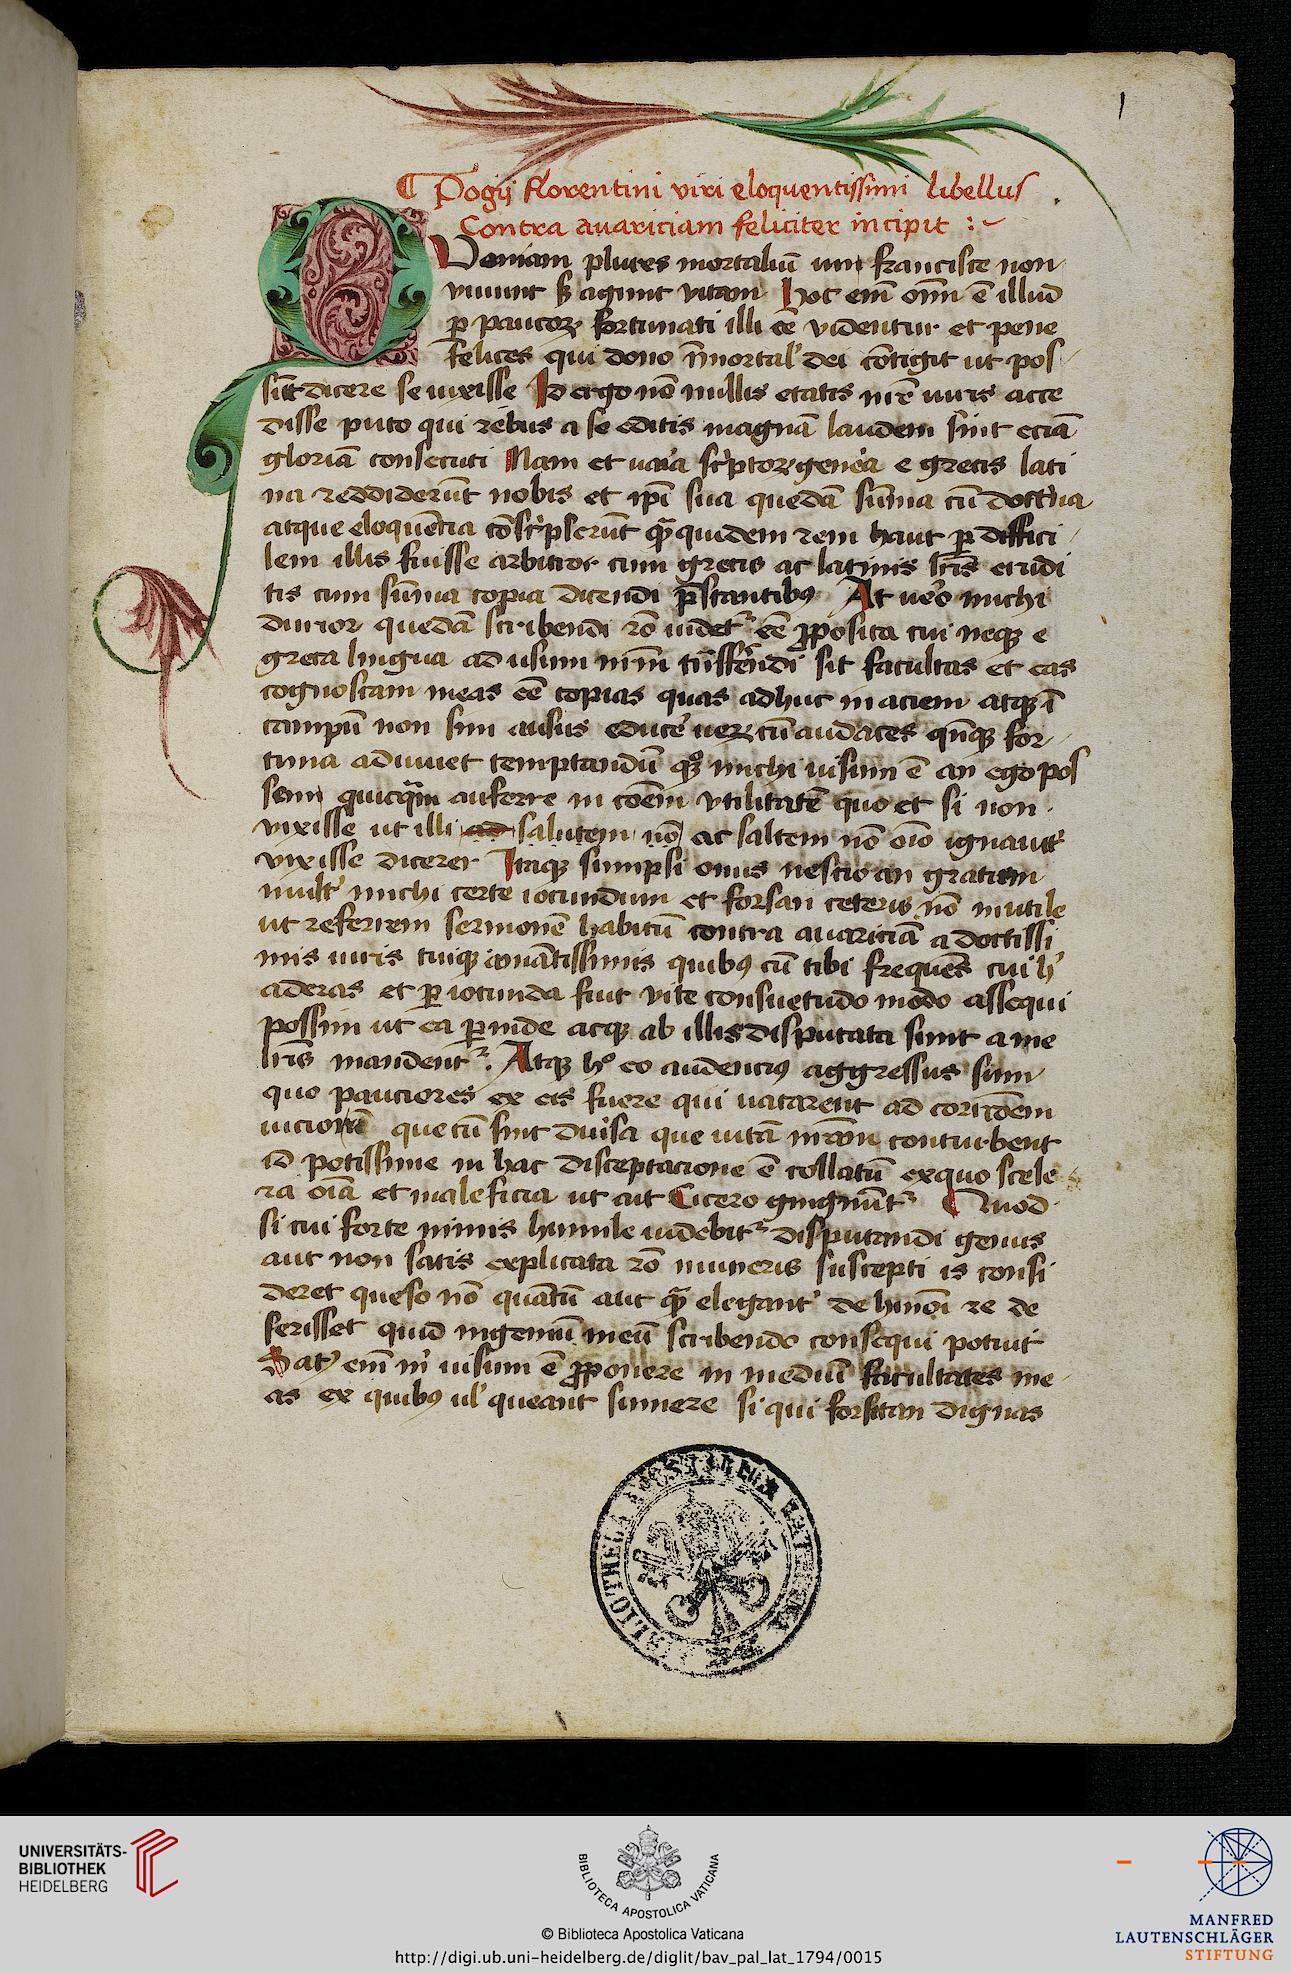 1
Pogij florentini viri eloquentissimi libellus
Contra avariciam feliciter incipit :~
QVoniam plures mortaliū mi francisce non
viuunt sꝫ agunt vitam Hoc em̄ om̄ ē illud
ꝑ paucoꝝ fortunati illi eē videntur et pene
felices qui dono īmortal' dei cōtigit ut pos
sīt dicere se uixisse Id ergo nō nullis etatis nr̄e uiris acce
disse puto qui rebus a se editis magnā laudem sint eciā
gloriā consecuti Nam et uaria sc'ptoꝝ gen̄a e grecis lati
na reddiderūt nobis et ip̄i sua quedā sūma cū doctrina
atque eloquēcia cōsc'pserūt quā quidem rem haut ꝑ diffici
lem illis fuisse arbitror cum grecis ac latinis lr̄is erudi
tis cum sūma copia dicendi p̄stantibꝰ At uero michi
durior quedā scribendi rō uidet᷑ eē ꝓposita cui neqꝫ e
greca lingua ad usum nr̄m trāsferēndi sit facultas et eas
cognoscam meas eē copias quas adhuc in aciem atqꝫ ī
campū non sim ausus educere ueꝝ cū audaces qūqꝫ for
tuna adiuuet temptandū quoqꝫ michi uisum ē an ego pos
sem quicq̄m auferre in cōem vtilitatē quo et si non
vixisse ut illi ad salutem nō ac saltem nō oīo ignauit᷑
vixisse dicerer Itaqꝫ sumpsi onus nescio an gratum
mult' michi certe iocundum et forsan ceteris nō inutile
ut referrem sermonē habitū contra auariciā a doctissi
mis uiris tuiqꝫ amātissimis quibꝰ cū tibi frequēs cui h'
aderas et ꝑ iocunda fuit vite consuetudo modo assequi
possim ut ea ꝑinde atqꝫ ab illis disputata sunt a me
lr̄is mandent᷑. Atqꝫ hº eo audenciꝰ aggressus sum
quo pauciores ex eis fuere qui uacarent ad
que cū sint diuisa que uitā nr̄am conturbent
id potissime in hac disceptacione ē collatū ex quo scele
ra oīa et maleficia ut aut Cicero gingnūt᷑ Quod
si cui forte nimis humile uidebit᷑ disputandi genus
aut non satis explicata rō muneris suscepti is consi
deret queso nō quātū aut quā elegant' de hmōi re de
ferisset quid ingeniū meū scribendo consequi potuit
Sat' em̄ m' uisum ē ꝓponere in mediū facultates me
as ex quibꝰ ul' queant sumere si qui forsitan dignas
UNIVERSITÄTS-
BIBLIOTHEK
HEIDELBERG
BIBLIOTECA APOSTOLICA VATICANA
© Biblioteca Apostolica Vaticana
http://digi.ub.uni-heidelberg.de/diglit/bav_pal_lat_1794/0015
MANFRED
LAUTENSCHLÄGER
STIFTUNG